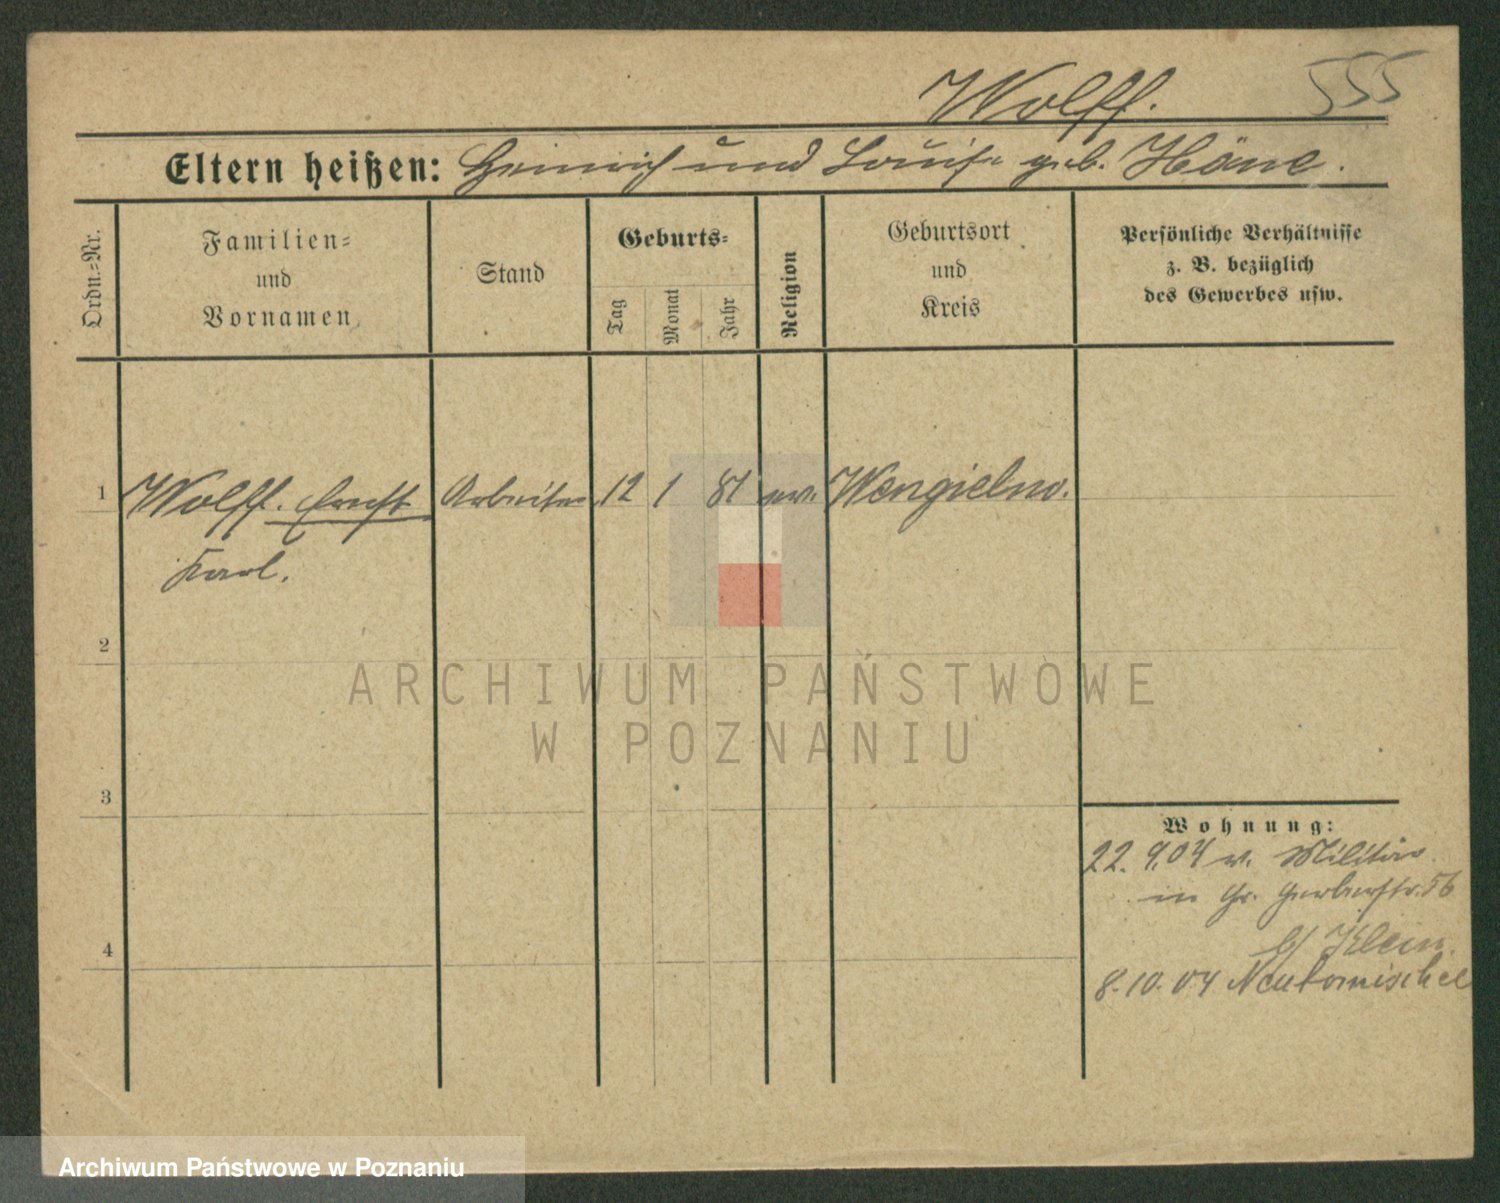 555
Wolff.
Eltern heißen: Heinrich und Louise geb. Häne.
Ordn.-Nr.
Familien-
und
Vornamen
Stand
Geburts-
Tag
Monat
Jahr
Religion
Geburtsort
und
Kreis
Persönliche Verhältnisse
z. B. bezüglich
des Gewerbes usw.
1 Wolff. Ernst Arbeiter 12 1 81 ev. Wengielno.
Karl.
2
3
4
Wohnung:
22. 9.04 v. Militär
in Gr. Gerberstr. 56
b/ Klein.
8.10.04 Neutomischel
ARCHIWUM PAŃSTWOWE
W POZNANIU
Archiwum Państwowe w Poznaniu